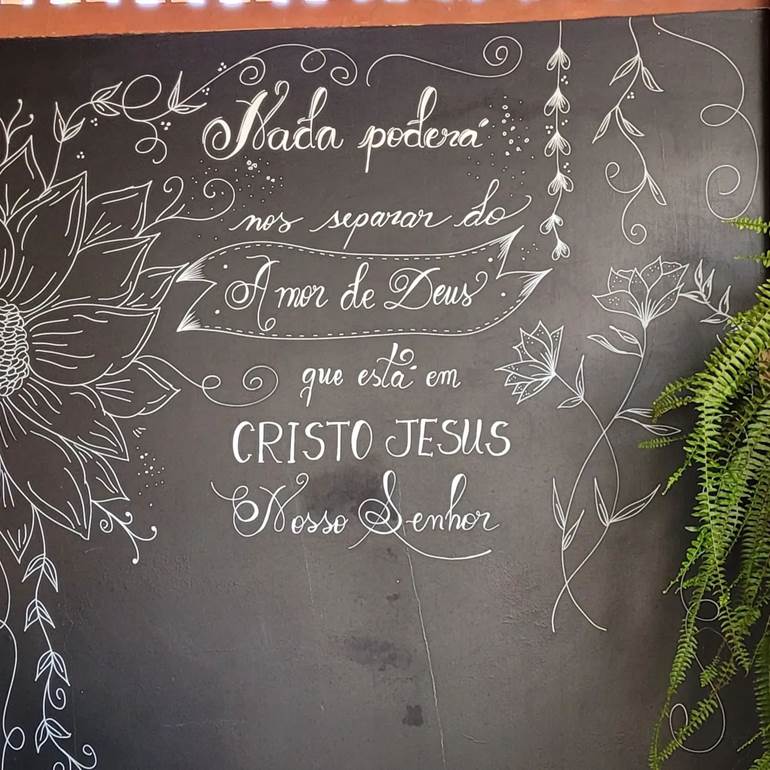 Nada poderá
nos separar do
Amor de Deus
que está em
CRISTO JESUS
Nosso Senhor